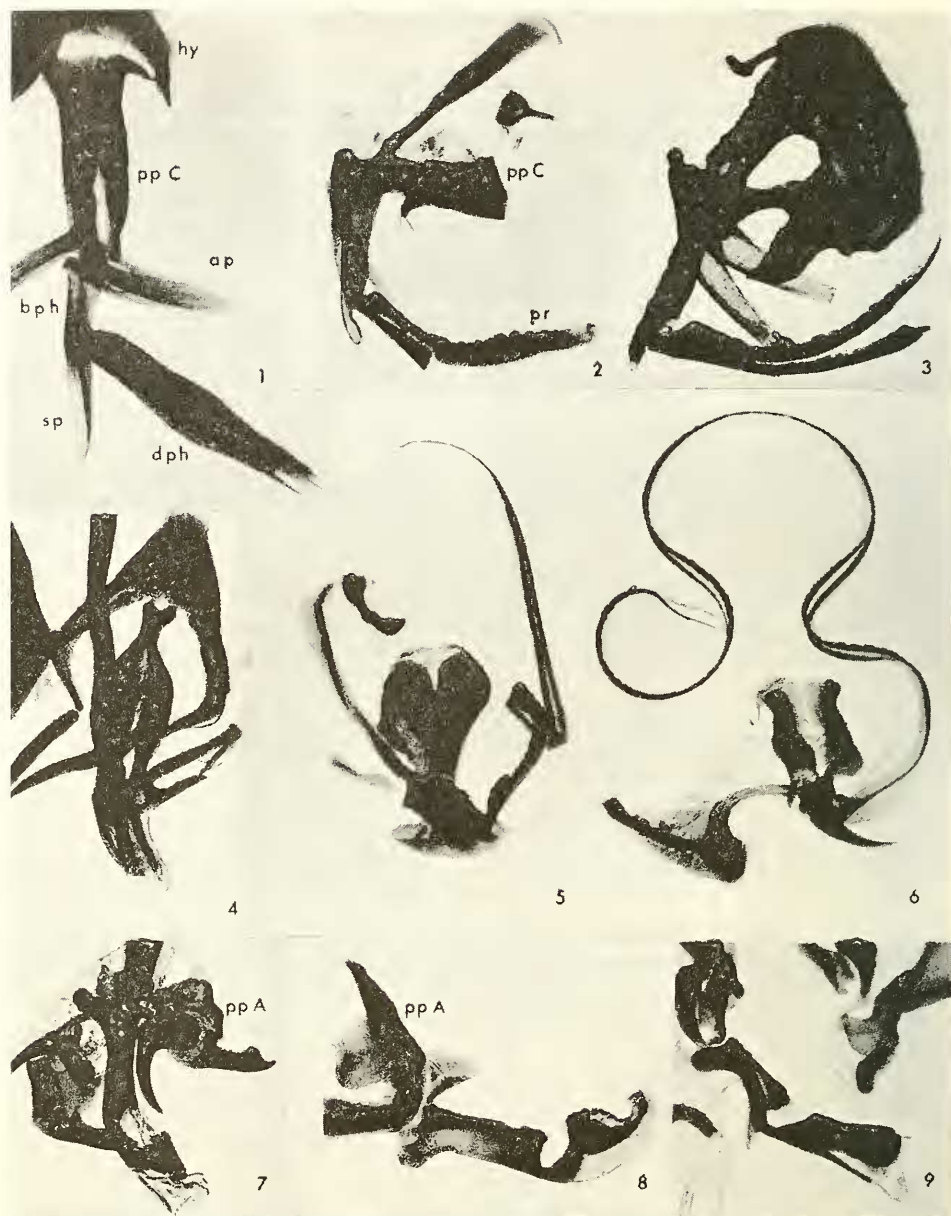 hy
pp C
ap
bph
sp
dph
1
pp C
pr
2
3
4
5
6
pp A
7
pp A
8
9